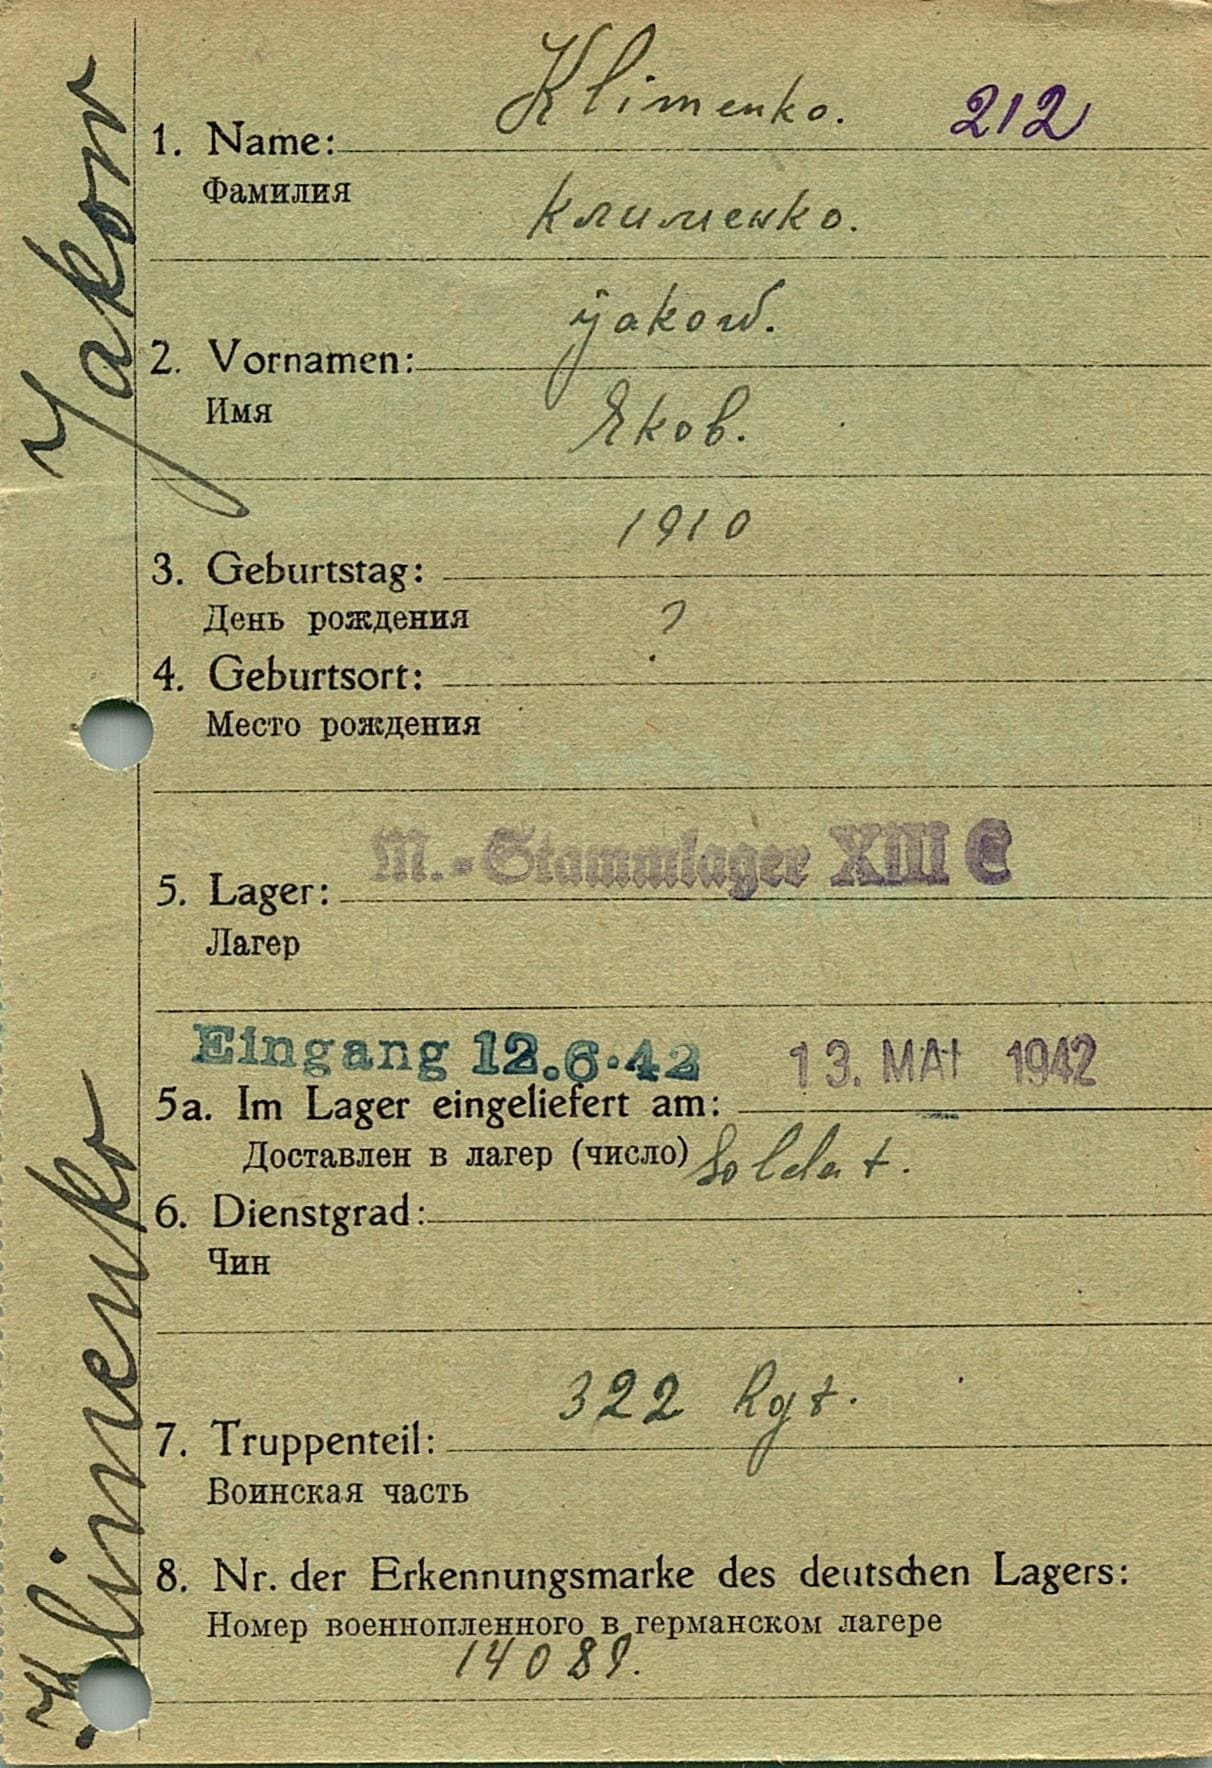 Klimenko. 212
1. Name:
Фамилия
Клименко.
Jakow.
2. Vornamen:
Имя
Яков.
1910
3. Geburtstag:
День рождения
?
4. Geburtsort:
Место рождения
M.-Stammlager XIII C
5. Lager:
Лагер
Eingang 12.6.42 13. MAI 1942
5a. Im Lager eingeliefert am:
Доставлен в лагер (число)
Soldat.
6. Dienstgrad:
Чин
322 Rgt.
7. Truppenteil:
Воинская часть
8. Nr. der Erkennungsmarke des deutschen Lagers:
Номер военнопленного в германском лагере
14089.
Klimenko Jakow